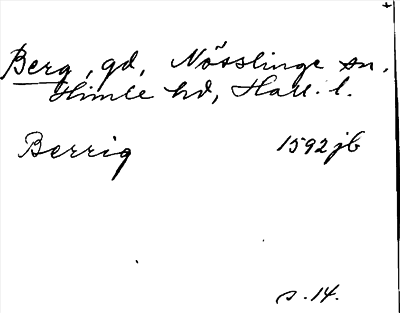 Berg, gd, Nösslinge sn,
Himle hd, Hall. l.
Berrig 1592 jb
s. 14.